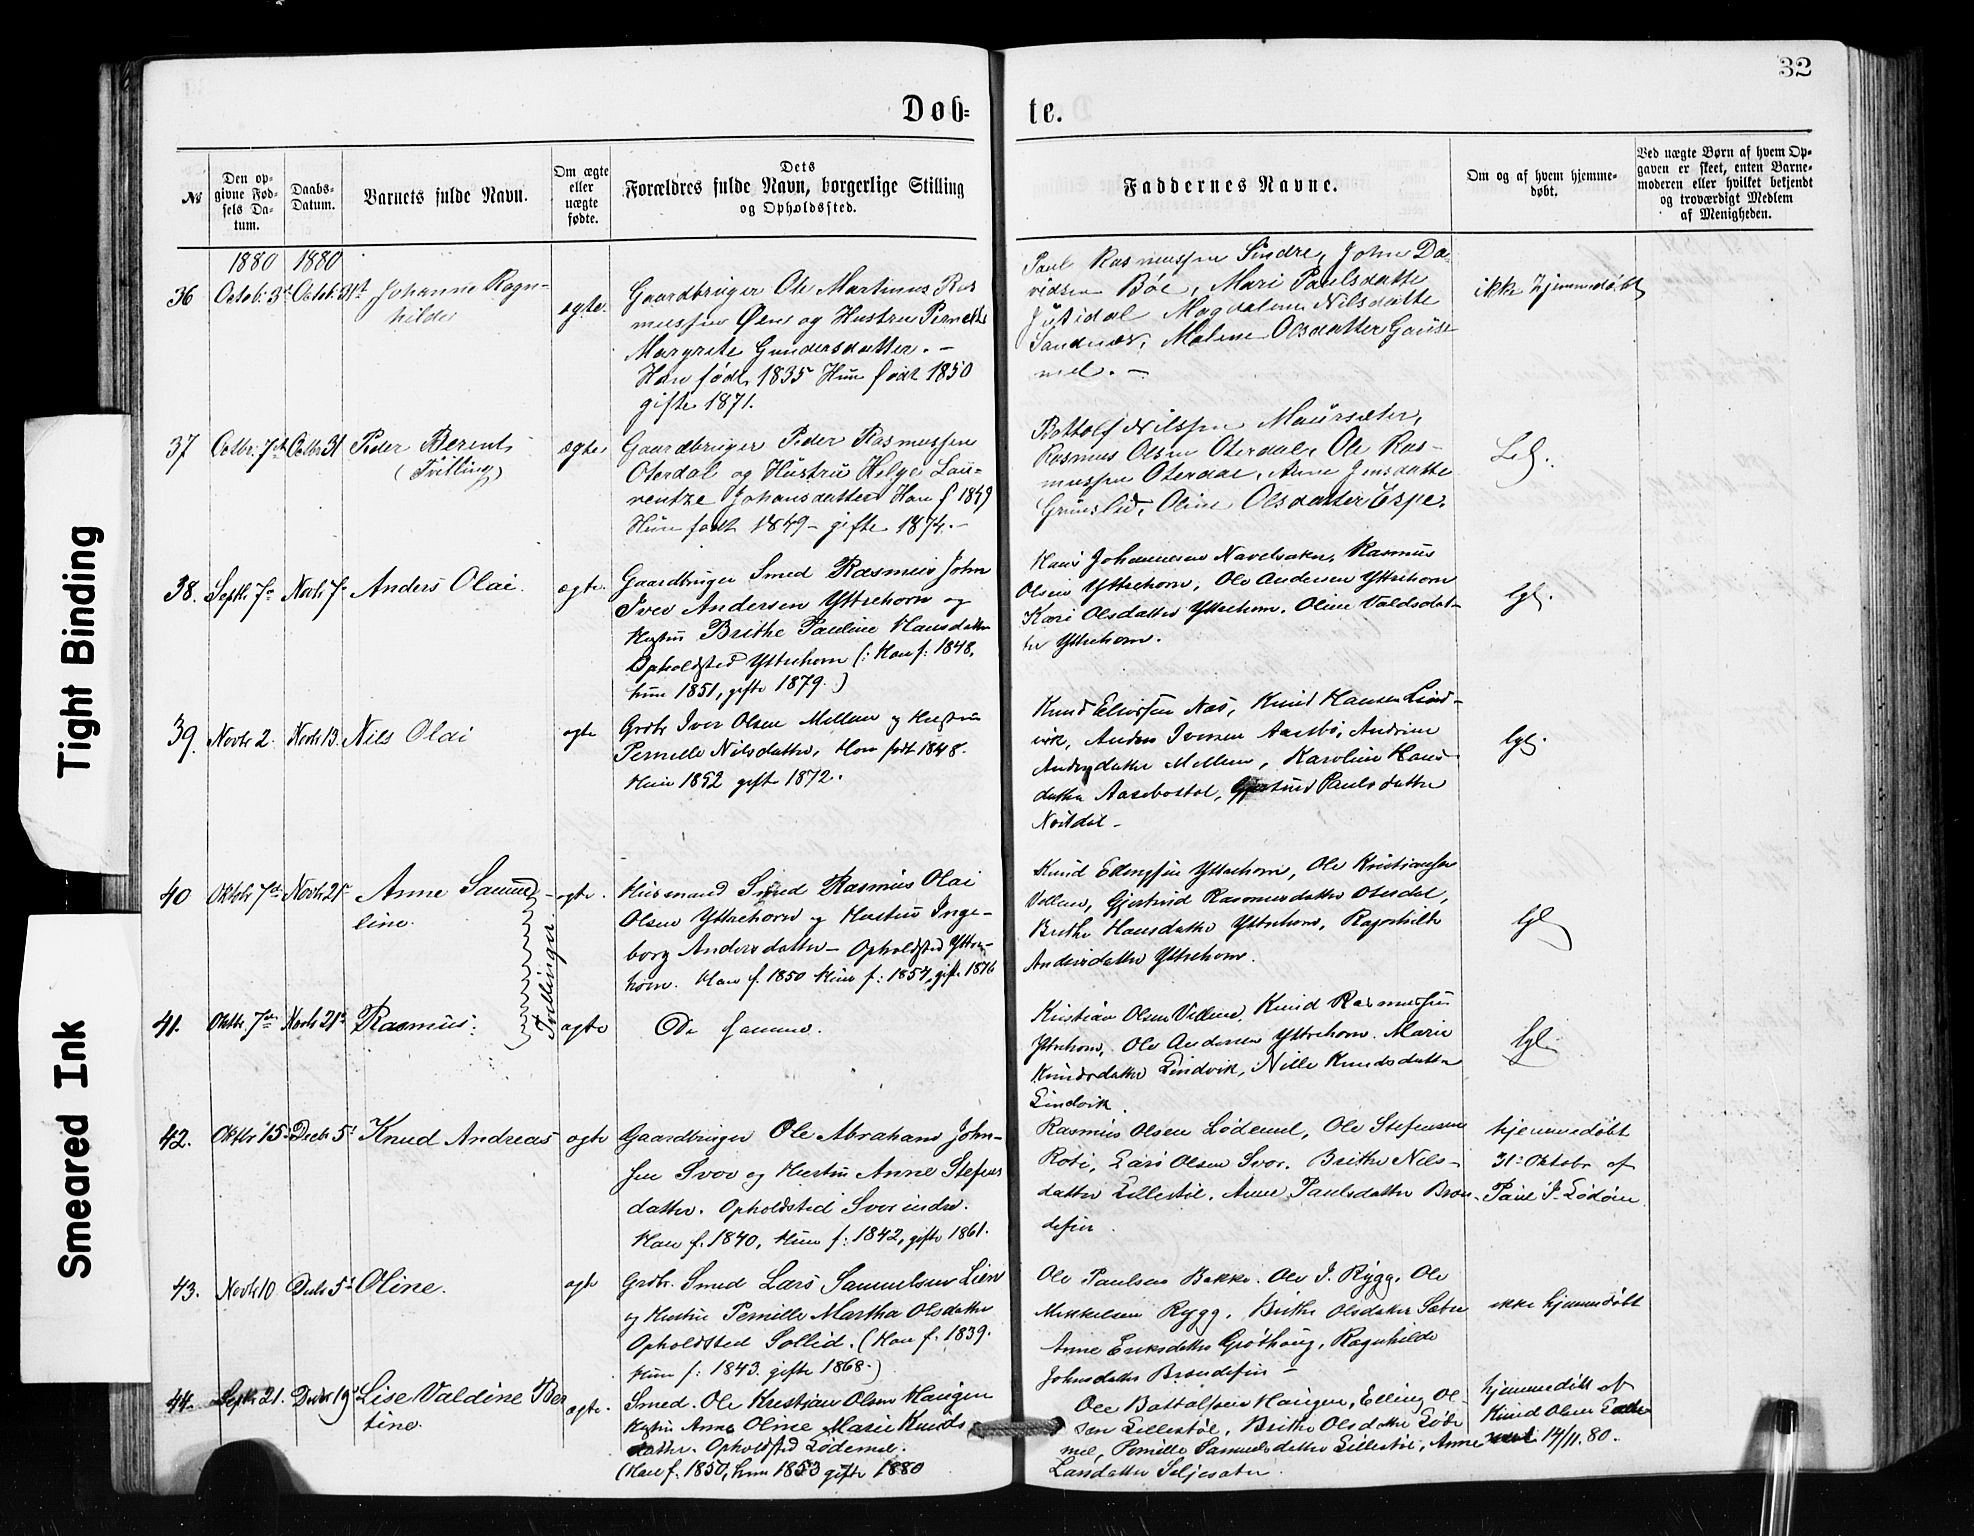 32
Døb=
te.
Tight Binding
Smeared Ink
№
Den op-
givne Fød-
sels Da-
tum.
Daabs-
Datum.
Barnets fulde Navn.
Om ægte
eller
uægte
fødte.
Dets
Forældres fulde Navn, borgerlige Stilling
og Opholdssted.
Faddernes Navne.
Om og af hvem hjemme-
døbt.
Ved uægte Børn af hvem Op-
gaven er skeet, enten Barne-
moderen eller hvilket bekjendt
og troværdigt Medlem
af Menigheden.
1880 1880
36 Octob: 3d Octob: 31st Johanne Ragn-
hilde
ægte.
Gaardbruger Ole Martinus Ras
mussen Øen og Hustru Pernelle
Margrete Gundersdatter. –
Han født 1835 Hun født 1850
gifte 1871.
Paul Rasmussen Sindre, John Da-
vidsen Böe, Mari Paulsdatte
Magdalene Nilsdatte
Sandnes, Malene Olsdatter Gause
mel. –
ikke hjemmedøbt
37 Octbr: 7de Octbr 31 Peder Berent
(Tvilling)
ægte
Gaardbruger Peder Rasmussen
Oterdal og Hustru Helge Lau-
rentze Johansdatter Han f 1849
Hun født 1849 – gifte 1874. –
Bottolf Nilssen Maursæter,
Rasmus Olsen Oterdal, Ole Ras-
mussen Oterdal, Anne Jensdatte
Oline Olsdatter Espe.
38. Septb 7de Novb 7de Anders Olai.
ægte.
Gaardbruger Smed Rasmus John
Iver Andersen Yttrehorn og
Hustru Brithe Pauline Hansdatter
Opholdsted Yttrehorn (: Han f: 1848,
hun 1851, gifte 1879.)
Hans Johannesen Navelsaker, Rasmus
Olsen Yttrehorn, Ole Andersen Yttrehorn
Kari Olsdatter Yttrehorn. Oline Valdsdat-
ter Yttrehorn.
lgl.
39. Novbr 2. Novbr 13. Nils Olai
ægte
Grdbr Iver Olsen Mellem og Hustru
Pernille Nilsdatter, Han født 1848.
Hun 1852 gifte 1872.
Knud Hansen Lind-
vik, Anders Iversen Aasebø, Andrine
Andersdatter Mellem, Karoline Hans
datter Aasebøstøl, Gjertrud Paulsdatter
Nosdal –
lgl.
40 Oktbr 7de Novbr 21de Anne Samue
line.
Tvillinger.
ægte.
Husmand Smed Rasmus Olai
Olsen Yttrehorn og Hustru Inge-
borg Andersdatter – Opholdsted Yttre-
horn. Han f. 1850 Hun f: 1854, gift 1876
Knud Ellingsen Yttrehorn, Ole Kristiansen
Gjertrud Rasmusdatter Oterdal,
Brithe Hansdatter Yttrehorn, Ragnhilde
Andersdatter Yttrehorn.
lgl
41. Oktbr. 7de Novbr 21de Rasmus.
ægte
De samme.
Kristian Olsen Knud Rasmussen
Yttrehorn, Ole Andersen Yttrehorn. Marie
Knudsdatter Lindvik, Nille Knudsdatter
Lindvik.
lgl.
42. Oktbr 15de Decbr 5te Knud Andreas
ægte
Gaardbruger Ole Abraham John-
sen Svor og Hustru Anne Stefens
datter. Opholdsted Svor indre.
Han f. 1840, Hun f: 1842, gifte 1861.
Rasmus Olsen Lødemel, Ole Stefensen
Roti, Lars Olsen Svor. Brithe Nils-
datter Lillestøl, Anne Paulsdatter Bron-
defur.
hjemmedøbt
31te Oktobr af
Paul J. Lødøen
43. Novbr 10 Decbr 5te Oline.
ægte
Grdbr. Smed Lars Samuelsen Lien
og Hustru Pernille Martha Olsdatter
Opholdsted Sollid. (Han f: 1839.
Hun f: 1843. gifte 1868.)
Ole Paulsen Bakke. Ole J. Rygg, Ole
Mikkelsen Rygg, Brithe Olsdatter Sætre
Anne Eriksdatter Grothaug, Ragnhilde
Johnsdatter Brondefur –
ikke hjemmedøbt
44. Septb 21. Decbr 19de Lise Valdine Ber
tine.
ægte.
Smed. Ole Kristian Olsen Haugen
Hustru Anne Oline Marie Knuds
datter. Opholdsted Lødemel.
(Han f. 1850, hun 1853 gifte 1880
Ole Bottolfsen Haugen, Elling Ol-
sen Lillestøl, Brithe Olsdatter Løde
mel, Pernille Samuelsdatter Lillestøl, Anne
Larsdatter Seljesæter.
hjemmedøbt af
Knud Olsen
14/11. 80.